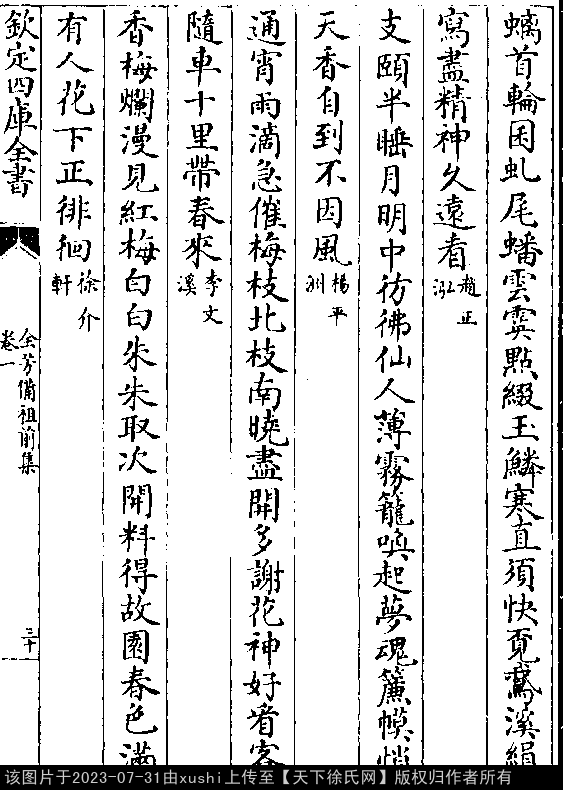 螭首輪囷虬尾蟠雲霙㸃綴玉鱗寒直須快覔鵞溪絹
寫盡精神久遠看趙正泓
支頤半睡月明中彷彿仙人薄霧籠喚起夢魂簾幙悄
天香自到不因風楊平洲
通宵雨滴急催梅枝北枝南曉盡開多謝花神好看客
隨車十里帶春來李文溪
香梅爛漫見紅梅白白朱朱取次開料得故園春色滿
有人花下正徘徊徐介軒
欽定四庫全書
全芳備祖前集
卷一
三十
该图片于2023-07-31由xushi上传至【天下徐氏网】版权归作者所有